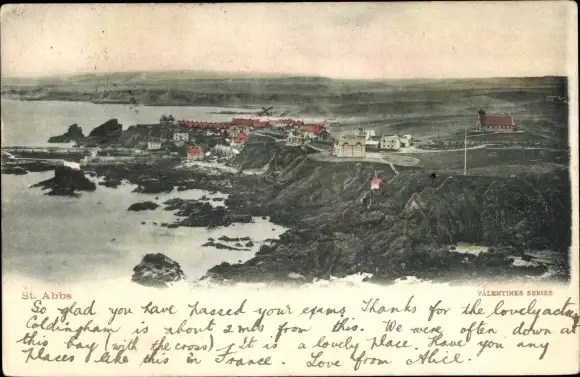 St. Abbs
VALENTINES SERIES
So glad you have passed your exams. Thanks for the lovely
Coldingham is about 2 mls from this. We were often down at
this bay (with the cross). It is a lovely place. Have you any
places like this in France. Love from Alice.